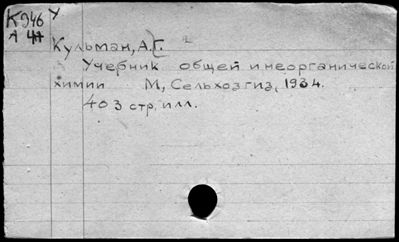 К946 У
А 44
Кульман, А.Г.
Учебник общей и неорганической
химии М, Сельхозгиз, 1934.
403 стр, илл.